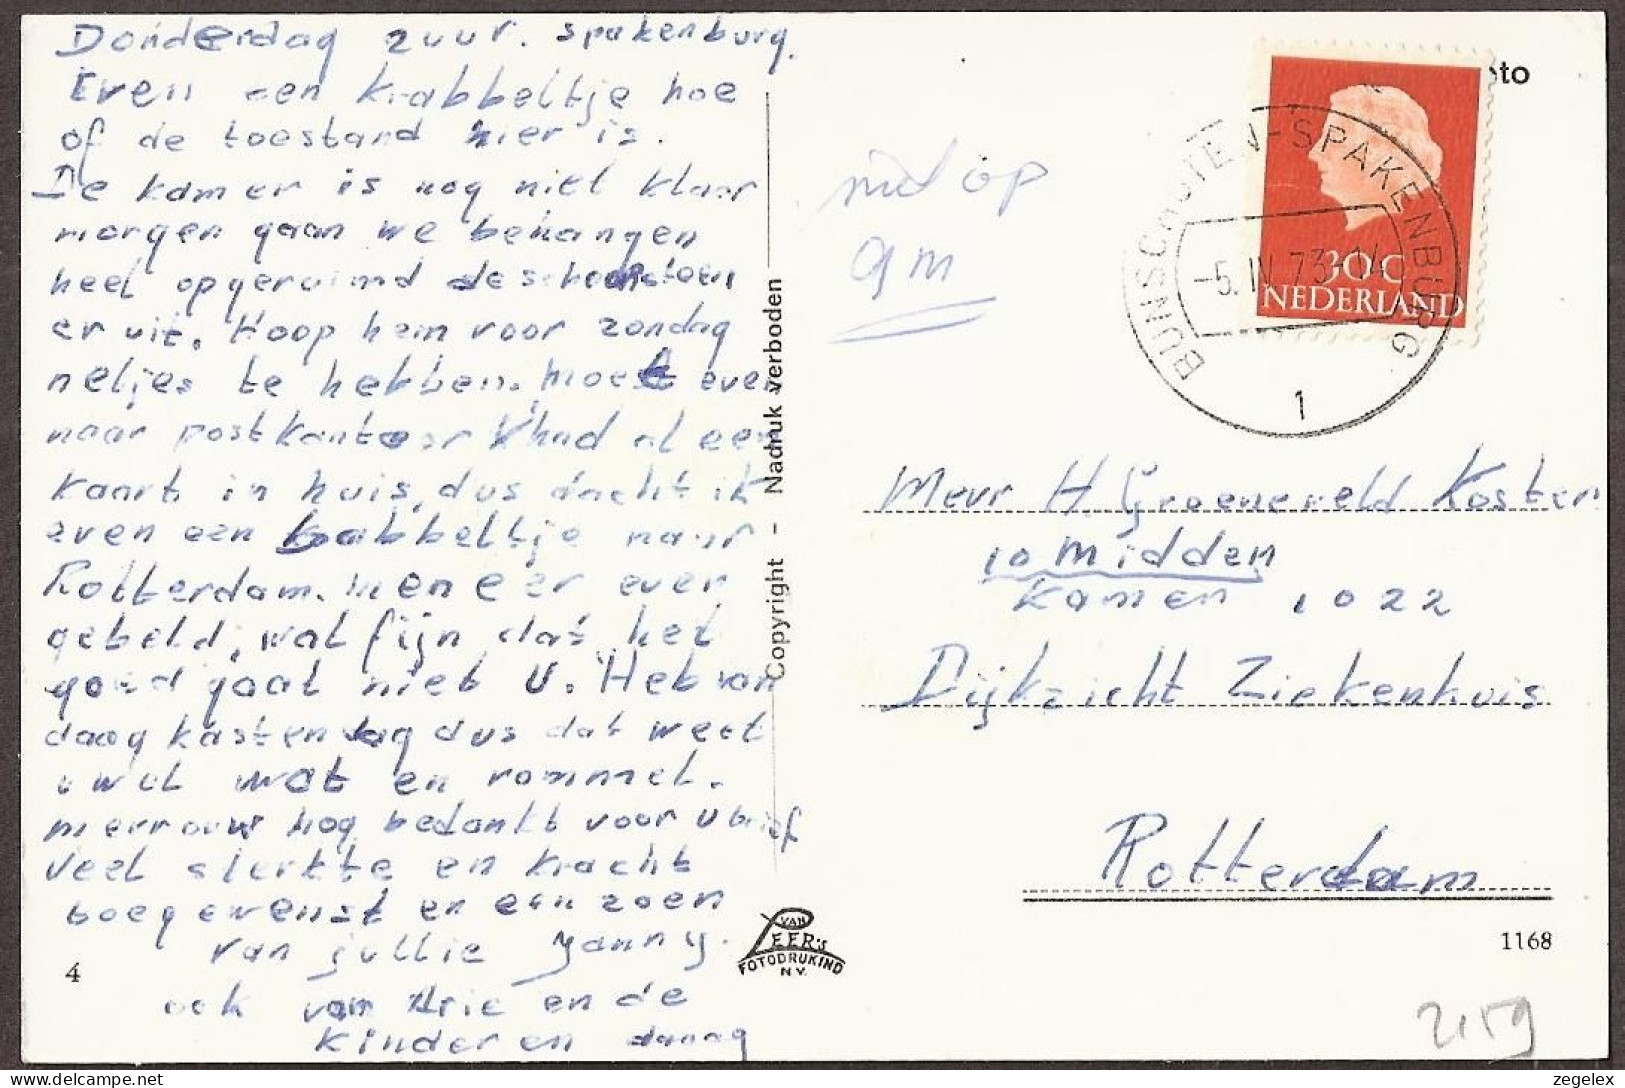 Donderdag 2 uur. Spakenburg.
Even een krabbeltje hoe
of de toestand hier is.
De kamer is nog niet klaar
morgen gaan we behangen
heel opgeruimd de schoorsteen
er uit. Hoop hem voor zondag
netjes te hebben. Moest even
naar postkantoor k'had al een
kaart in huis, dus dacht ik
even een krabbeltje naar
Rotterdam. meneer even
gebeld, wat fijn dat het
goed gaat niet U. Heb van
daag kastendag dus dat weet
u wel wat en rommel.
mevrouw nog bedankt voor u brief
veel sterkte en kracht
toegewenst en een zoen
van jullie Janny.
ook van Arie en de
kinderen daaag
4
Copyright - Nadruk verboden
VAN
LEER'S
FOTODRUKIND
N.V.
oto
BUNSCHOTEN-SPAKENBURG
-5.IV.73.14
1
30C
NEDERLAND
niet op
9m
Mevr H. Groeneveld Koster
10 Midden
Kamer 1022
Dijkzicht Ziekenhuis
Rotterdam
1168
2159
zegelex